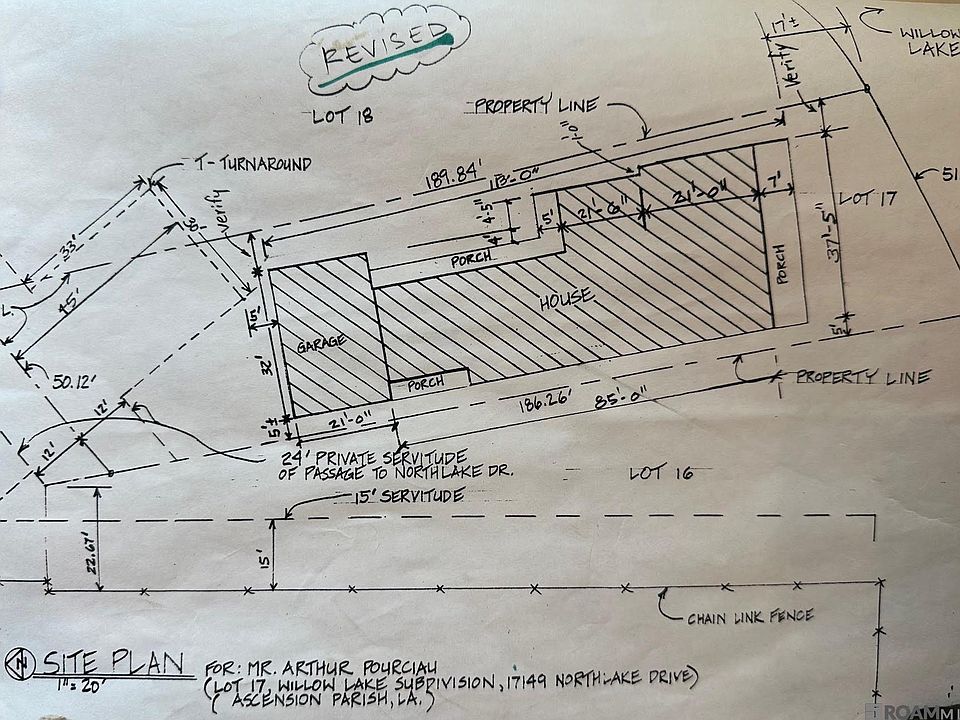 REVISED
LOT 18
PROPERTY LINE
17'±
WILLOW
LAKE
Verify
1'-0"
T-TURNAROUND
189.84'
Verify
33'
45'
4'-5"
4'
5'
21'-6"
21'-0"
7'
LOT 17
51
37'-5"
PORCH
PORCH
HOUSE
5'
GARAGE
32'
L.
50.12'
12'
12'
PORCH
5'
PROPERTY LINE
186.26'
85'-0"
5'±
21'-0"
24' PRIVATE SERVITUDE
OF PASSAGE TO NORTHLAKE DR.
LOT 16
15' SERVITUDE
22.67'
15'
CHAIN LINK FENCE
N
SITE PLAN
1"=20'
FOR: MR. ARTHUR POURCIAU
(LOT 17, WILLOW LAKE SUBDIVISION, 17149 NORTHLAKE DRIVE)
(ASCENSION PARISH, LA.)
ROAM MI